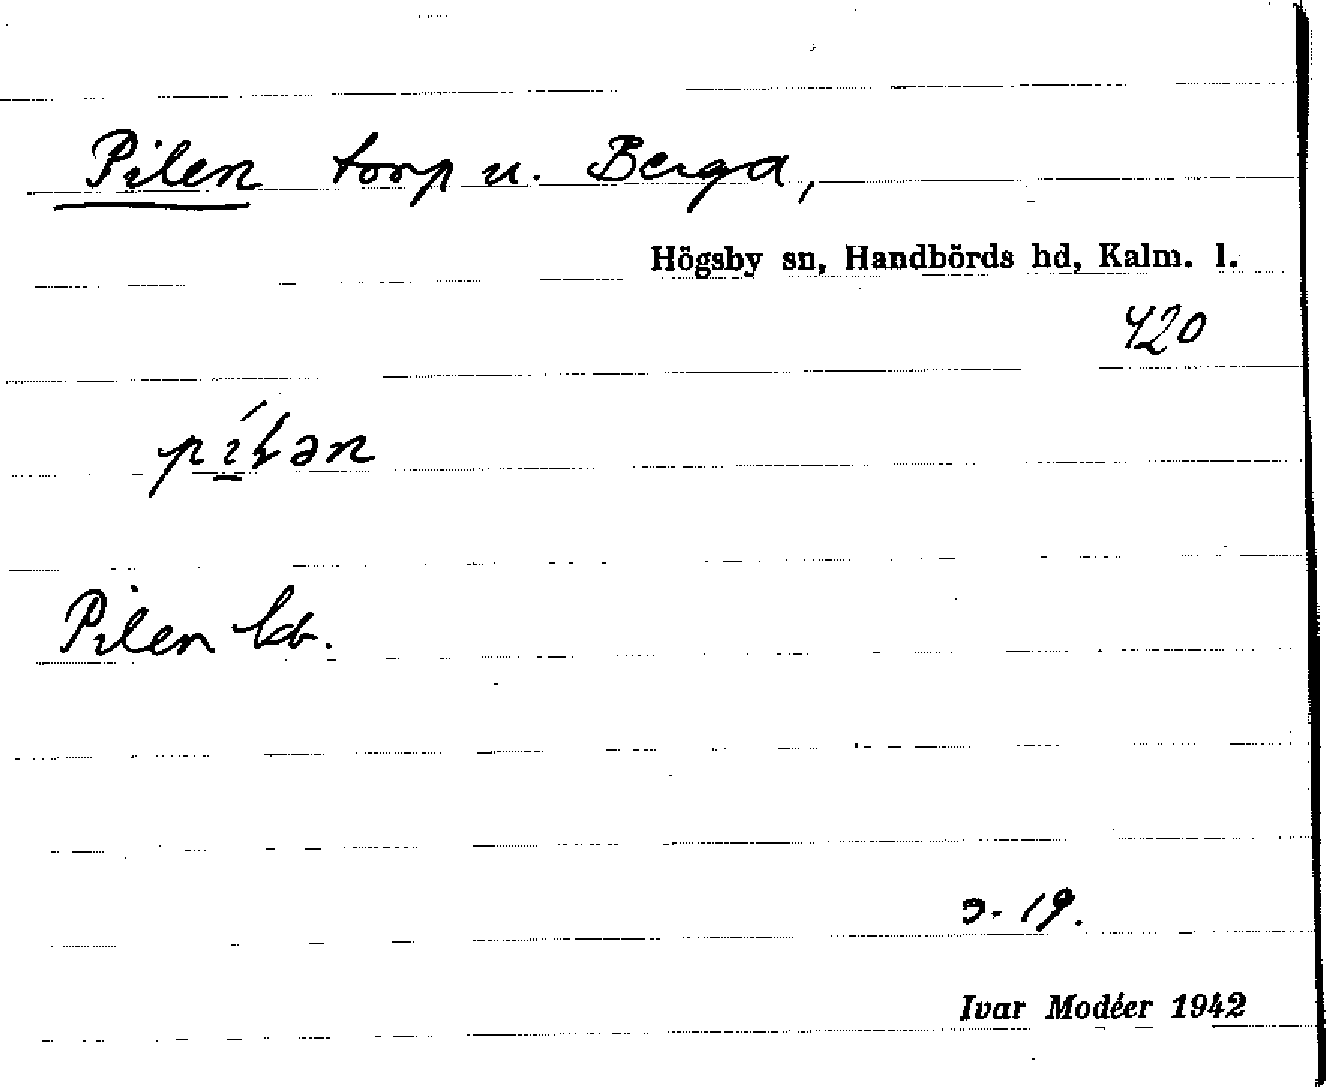 Pilen torp u. Berga,
Högsby sn, Handbörds hd, Kalm. l.
420
Pilen kb.
19.
Ivar Modéer 1942